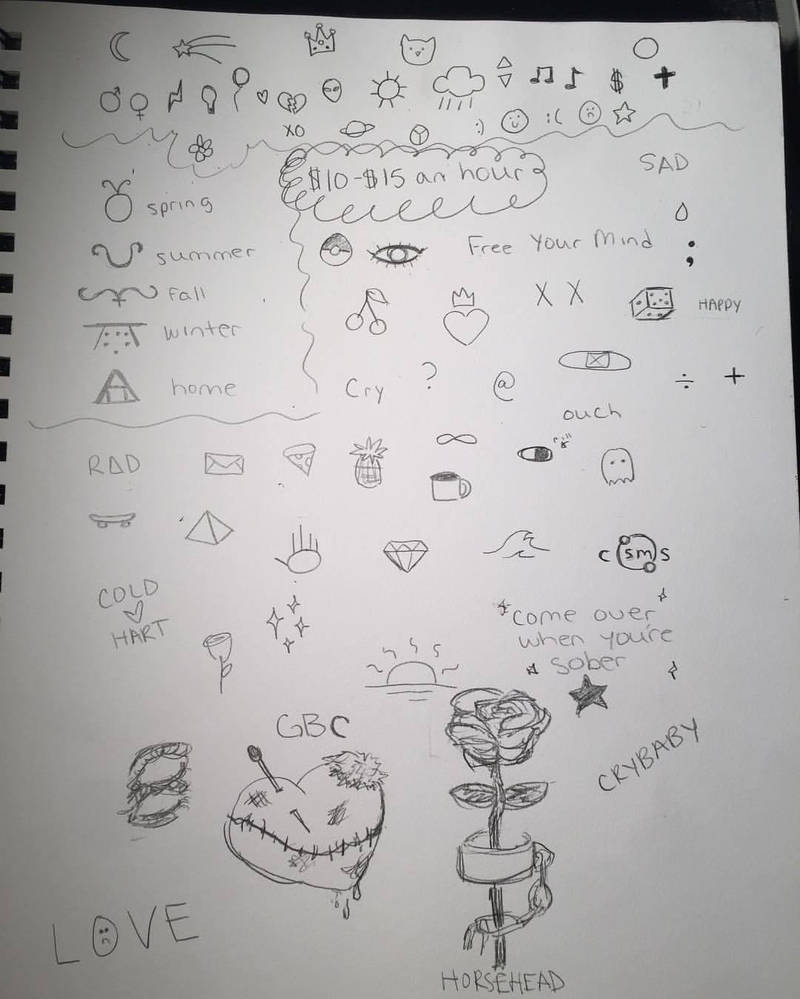 $
XO
:)
:(
$10-$15 an hour
SAD
spring
summer
Free Your Mind
;
fall
X X
HAPPY
winter
home
Cry
?
@
÷
+
ouch
RAD
COLD
HART
c sm s
come over
when you're
sober
GBC
CRYBABY
LOVE
HORSEHEAD